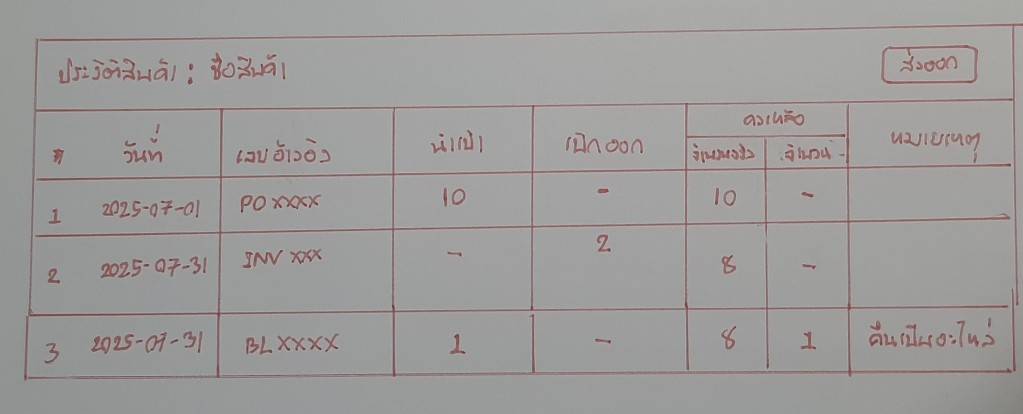 ประวัติสินค้า : ชื่อสินค้า
ส่งออก
# วันที่ เลขอ้างอิง นำเข้า เบิกออก คงเหลือ หมายเหตุ
จำนวน
1 2025-07-01 PO XXXX 10 - 10 -
2 2025-07-31 INV XXX - 2 8 -
3 2025-07-31 BL XXXX 1 - 8 1 คืนเป็นอะไหล่